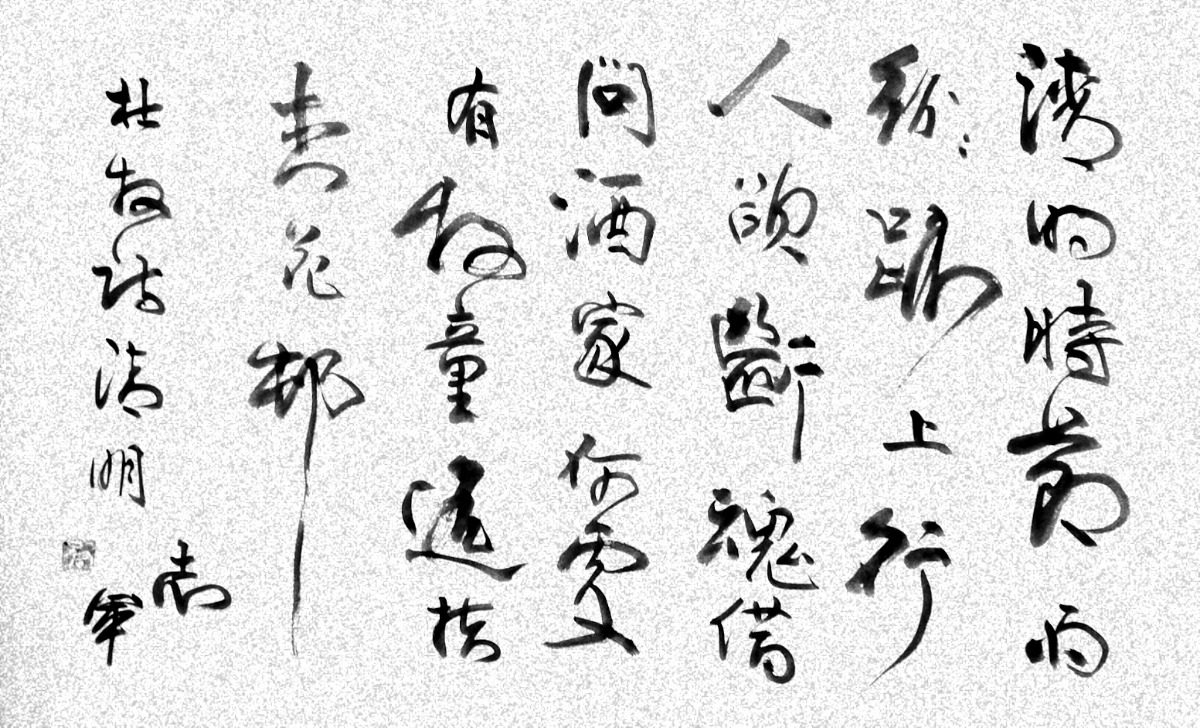 清明時節雨
紛〻路上行
人欲斷魂借
問酒家何處
有牧童遙指
杏花邨
杜牧詩清明